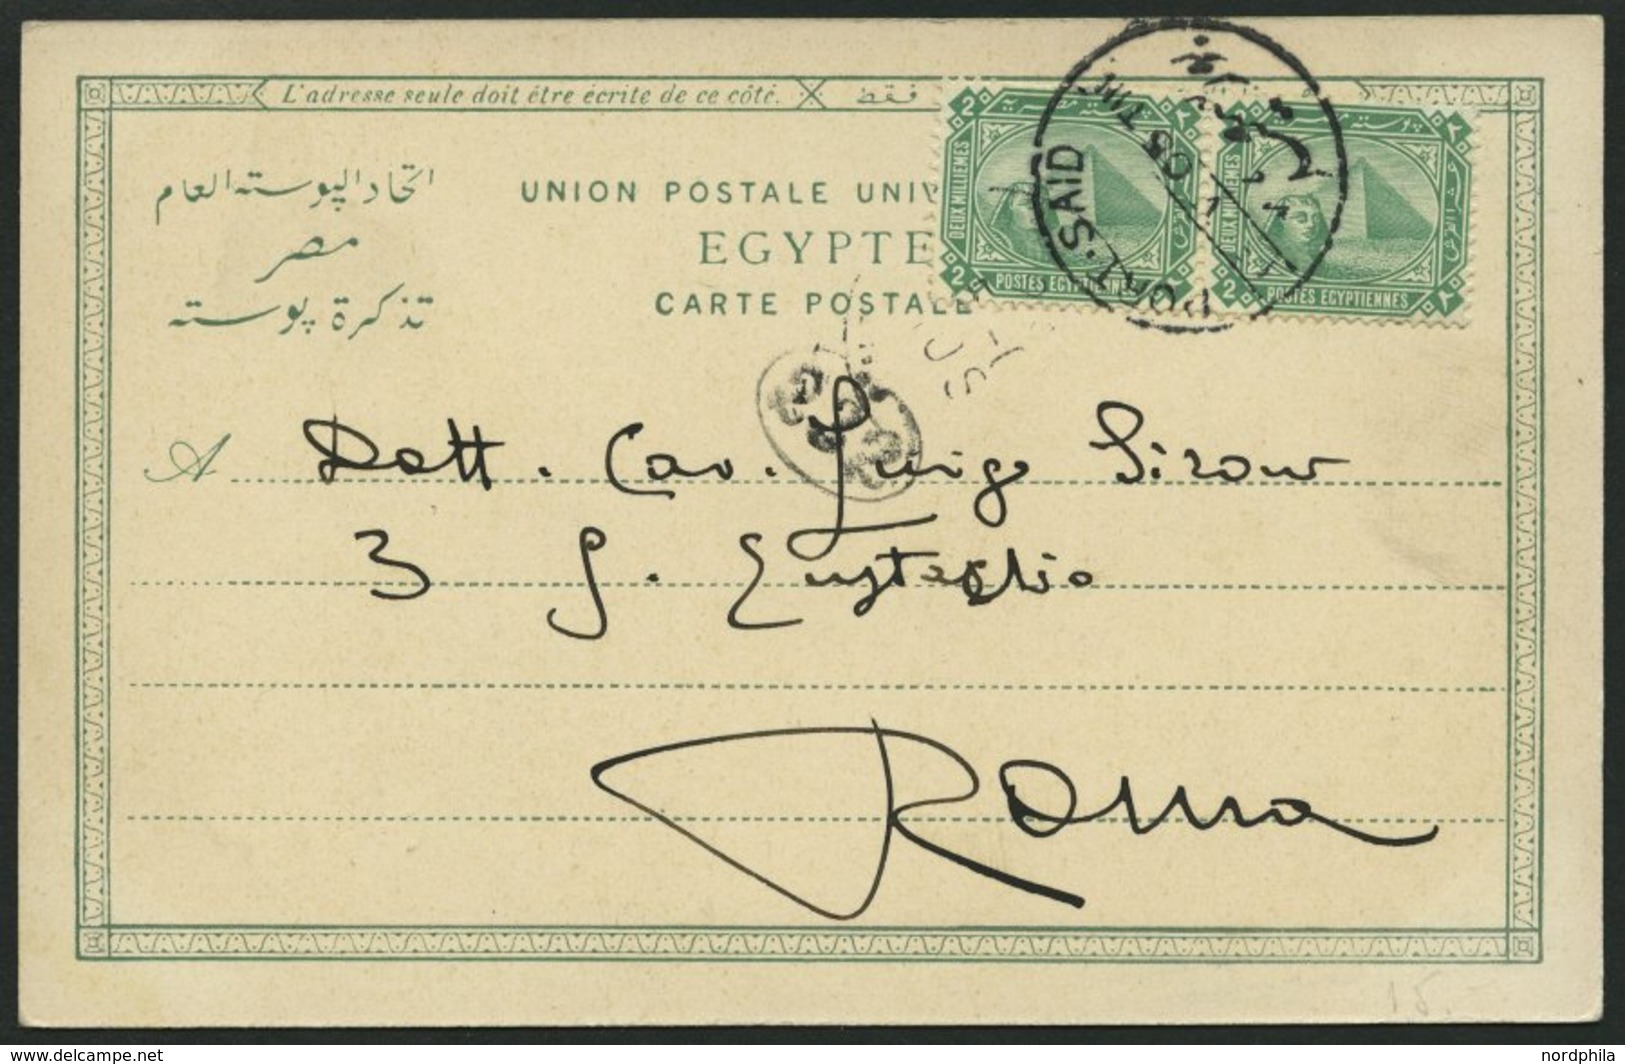 L'adresse seule doit être écrite de ce côté.
فقط
اتحاد البوسته العام
مصر
تذكرة بوسته
UNION POSTALE UNIV
EGYPTE
CARTE POSTALE
2
DEUX MILLIEMES
2
POSTES EGYPTIENNES
2
DEUX MILLIEMES
2
POSTES EGYPTIENNES
PORT-SAID
05 TM
A Dott. Cav. Luigi
3 S. Eustachio
Roma
15.-
nordphila